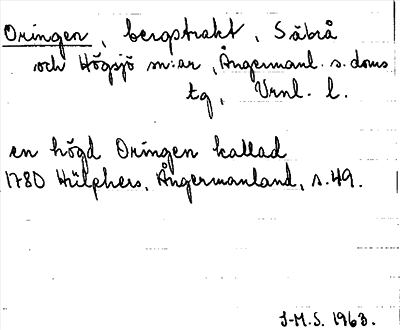 Oringen, bergstrakt, Säbrå
och Högsjö sn:ar, Ångermanl. s. doms
tg, Vrnl. l.
en höjd Oringen kallad
1780 Hülphers, Ångermanland, s. 49.
J-M.S. 1963.